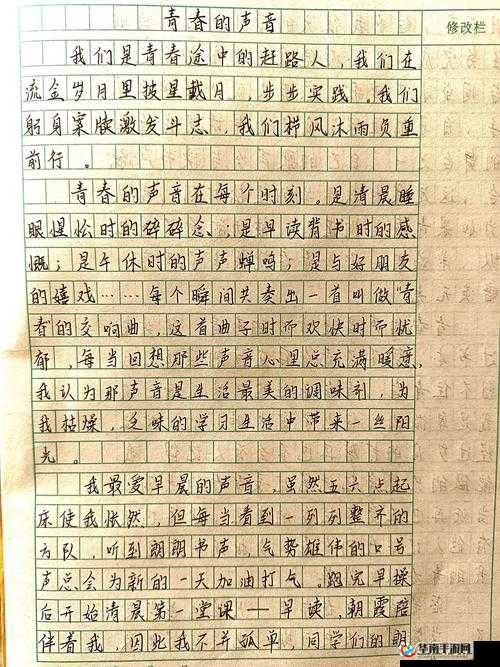 青春的声音
修改栏
我们是青春途中的赶路人，我们在
流金岁月里披星戴月，步步实践。我们
躬身案牍激发斗志，我们栉风沐雨负重
前行。
青春的声音在每个时刻。是清晨睡
眼惺忪时的碎碎念；是早读背书时的感
慨；是午休时的声声蝉鸣；是与好朋友
的嬉戏……每个瞬间共奏出一首叫做"青
春"的交响曲，这首曲子时而欢快时而忧
郁，每当回想那些声音心里总充满暖意，
我认为那声音是生活最美的调味剂，为
我枯燥，乏味的学习生活中带来一丝阳
光。
我最爱早晨的声音，虽然五六点起
床使我怅然，但每当看到一列列整齐的
方队，听到朗朗书声，气势雄伟的口号
声总会为新的一天加油打气。跑完早操
后开始清晨第一堂课——早读，朝霞陪
伴着我，因此我不并孤单，同学们的朗
华南手游网